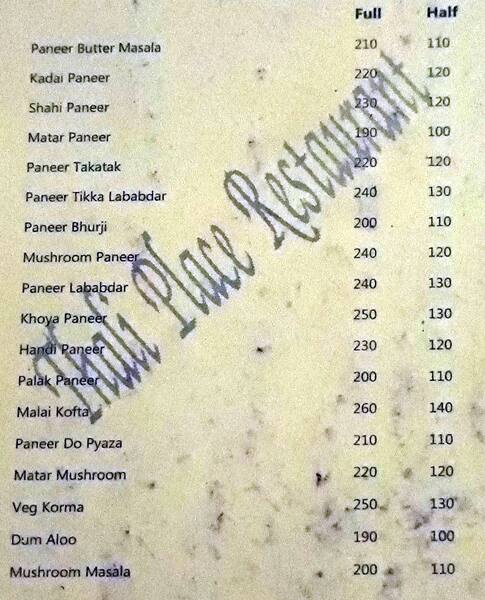 Full Half
Paneer Butter Masala 210 110
Kadai Paneer 220 120
Shahi Paneer 230 120
Matar Paneer 190 100
Paneer Takatak 220 120
Paneer Tikka Lababdar 240 130
Paneer Bhurji 200 110
Mushroom Paneer 240 120
Paneer Lababdar 240 130
Khoya Paneer 250 130
Handi Paneer 230 120
Palak Paneer 200 110
Malai Kofta 260 140
Paneer Do Pyaza 210 110
Matar Mushroom 220 120
Veg Korma 250 130
Dum Aloo 190 100
Mushroom Masala 200 110
Thali Place Restaurant